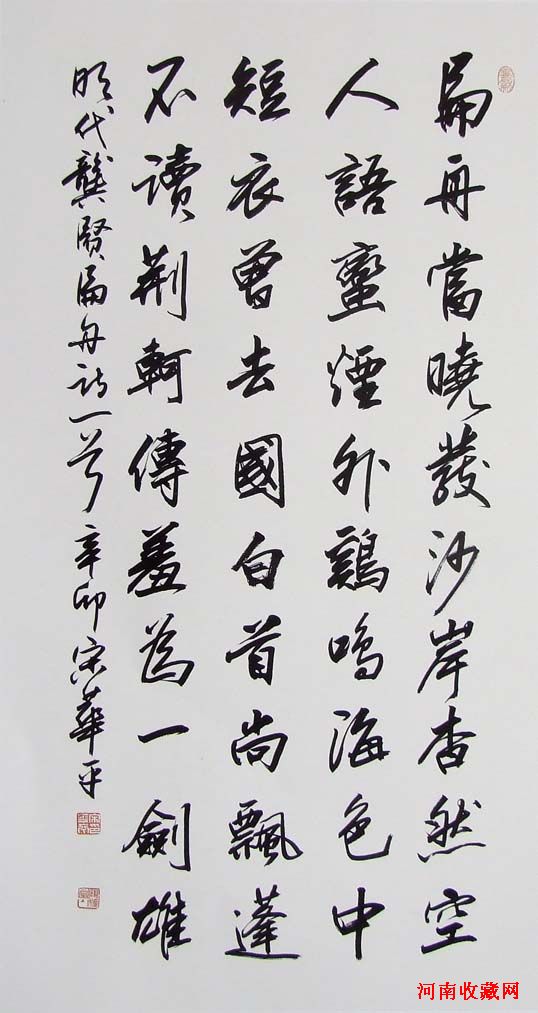 扁舟當曉發沙岸杳然空
人語蠻煙外鷄鳴海色中
短衣曾去國白首尚飄蓬
不讀荆軻傳羞為一劍雄
明代龔賢扁舟詩一首辛卯宋華平
河南收藏网